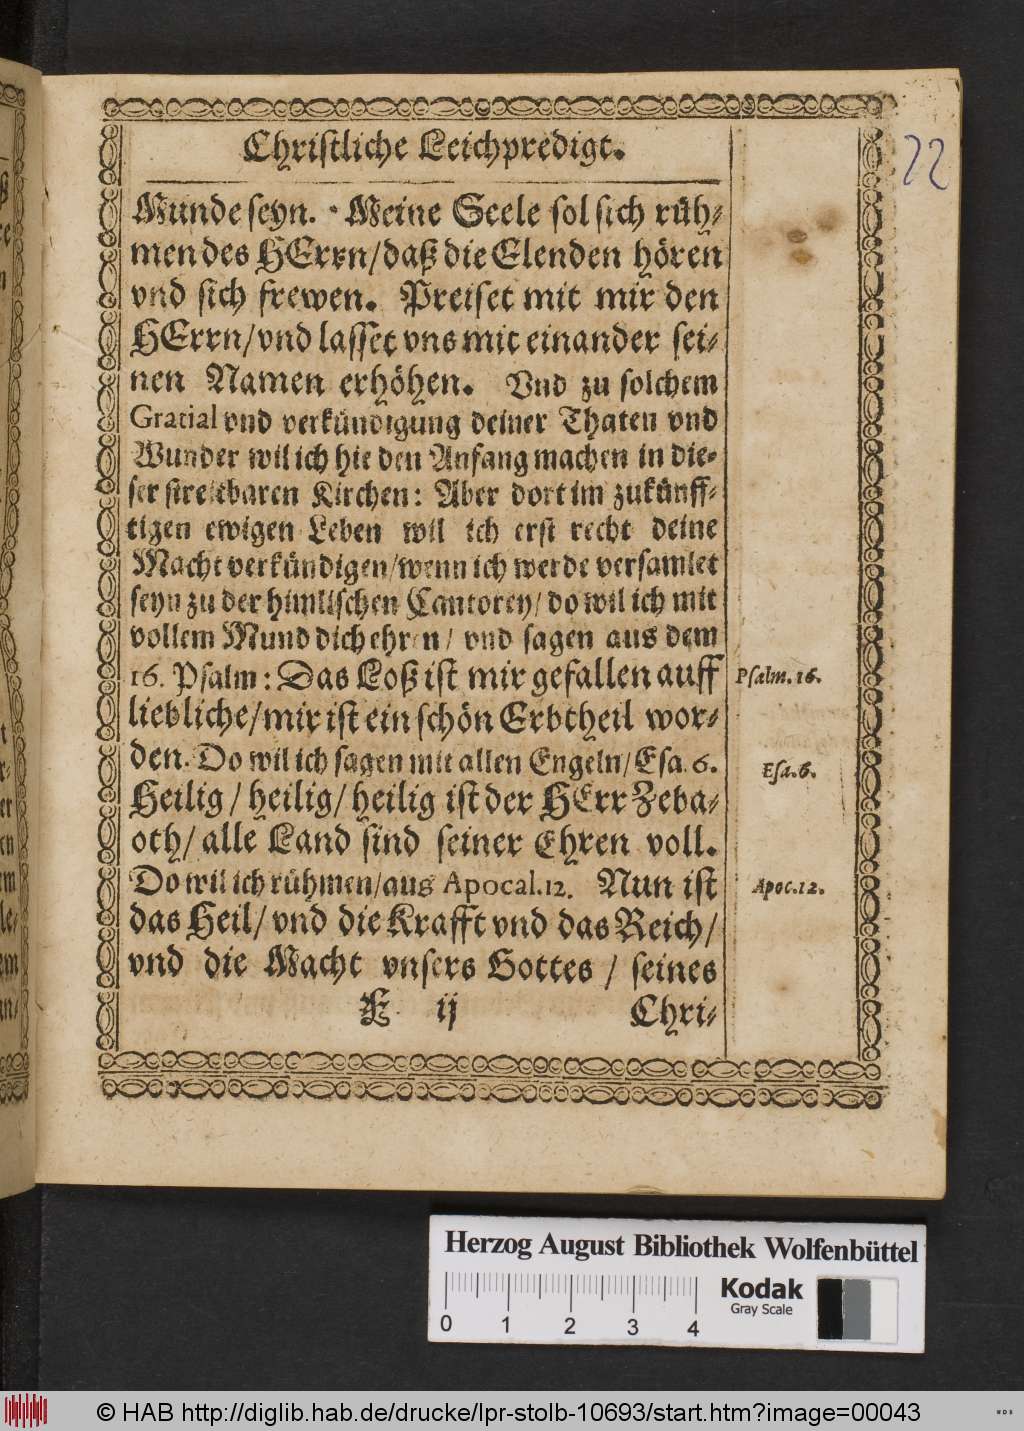 Christliche Leichpredigt.
22
Munde seyn. Meine Seele sol sich rüh-
men des HErrn/daß die Elenden hören
vnd sich frewen. Preiset mit mir den
HErrn/vnd lasset vns mit einander sei-
nen Namen erhöhen. Vnd zu solchem
Gratial vnd verkündigung deiner Thaten vnd
Wunder wil ich hie den Anfang machen in die-
ser streitbaren Kirchen: Aber dort im zukünff-
tigen ewigen Leben wil ich erst recht deine
Macht verkündigen/wenn ich werde versamlet
seyn zu der himlischen Cantorey/do wil ich mit
vollem Mund dich ehren/ vnd sagen aus dem
16. Psalm: Das Loß ist mir gefallen auff
Psalm. 16.
liebliche/mir ist ein schön Erbtheil wor-
den. Do wil ich sagen mit allen Engeln/Esa. 6.
Esa. 6.
Heilig/ heilig/ heilig ist der HErr Zeba-
oth/ alle Land sind seiner Ehren voll.
Do wil ich rühmen/aus Apocal. 12. Nun ist
Apoc. 12.
das Heil/ vnd die Krafft vnd das Reich/
vnd die Macht vnsers Gottes / seines
E ij Chri-
Herzog August Bibliothek Wolfenbüttel
Kodak
Gray Scale
0 1 2 3 4
© HAB http://diglib.hab.de/drucke/lpr-stolb-10693/start.htm?image=00043